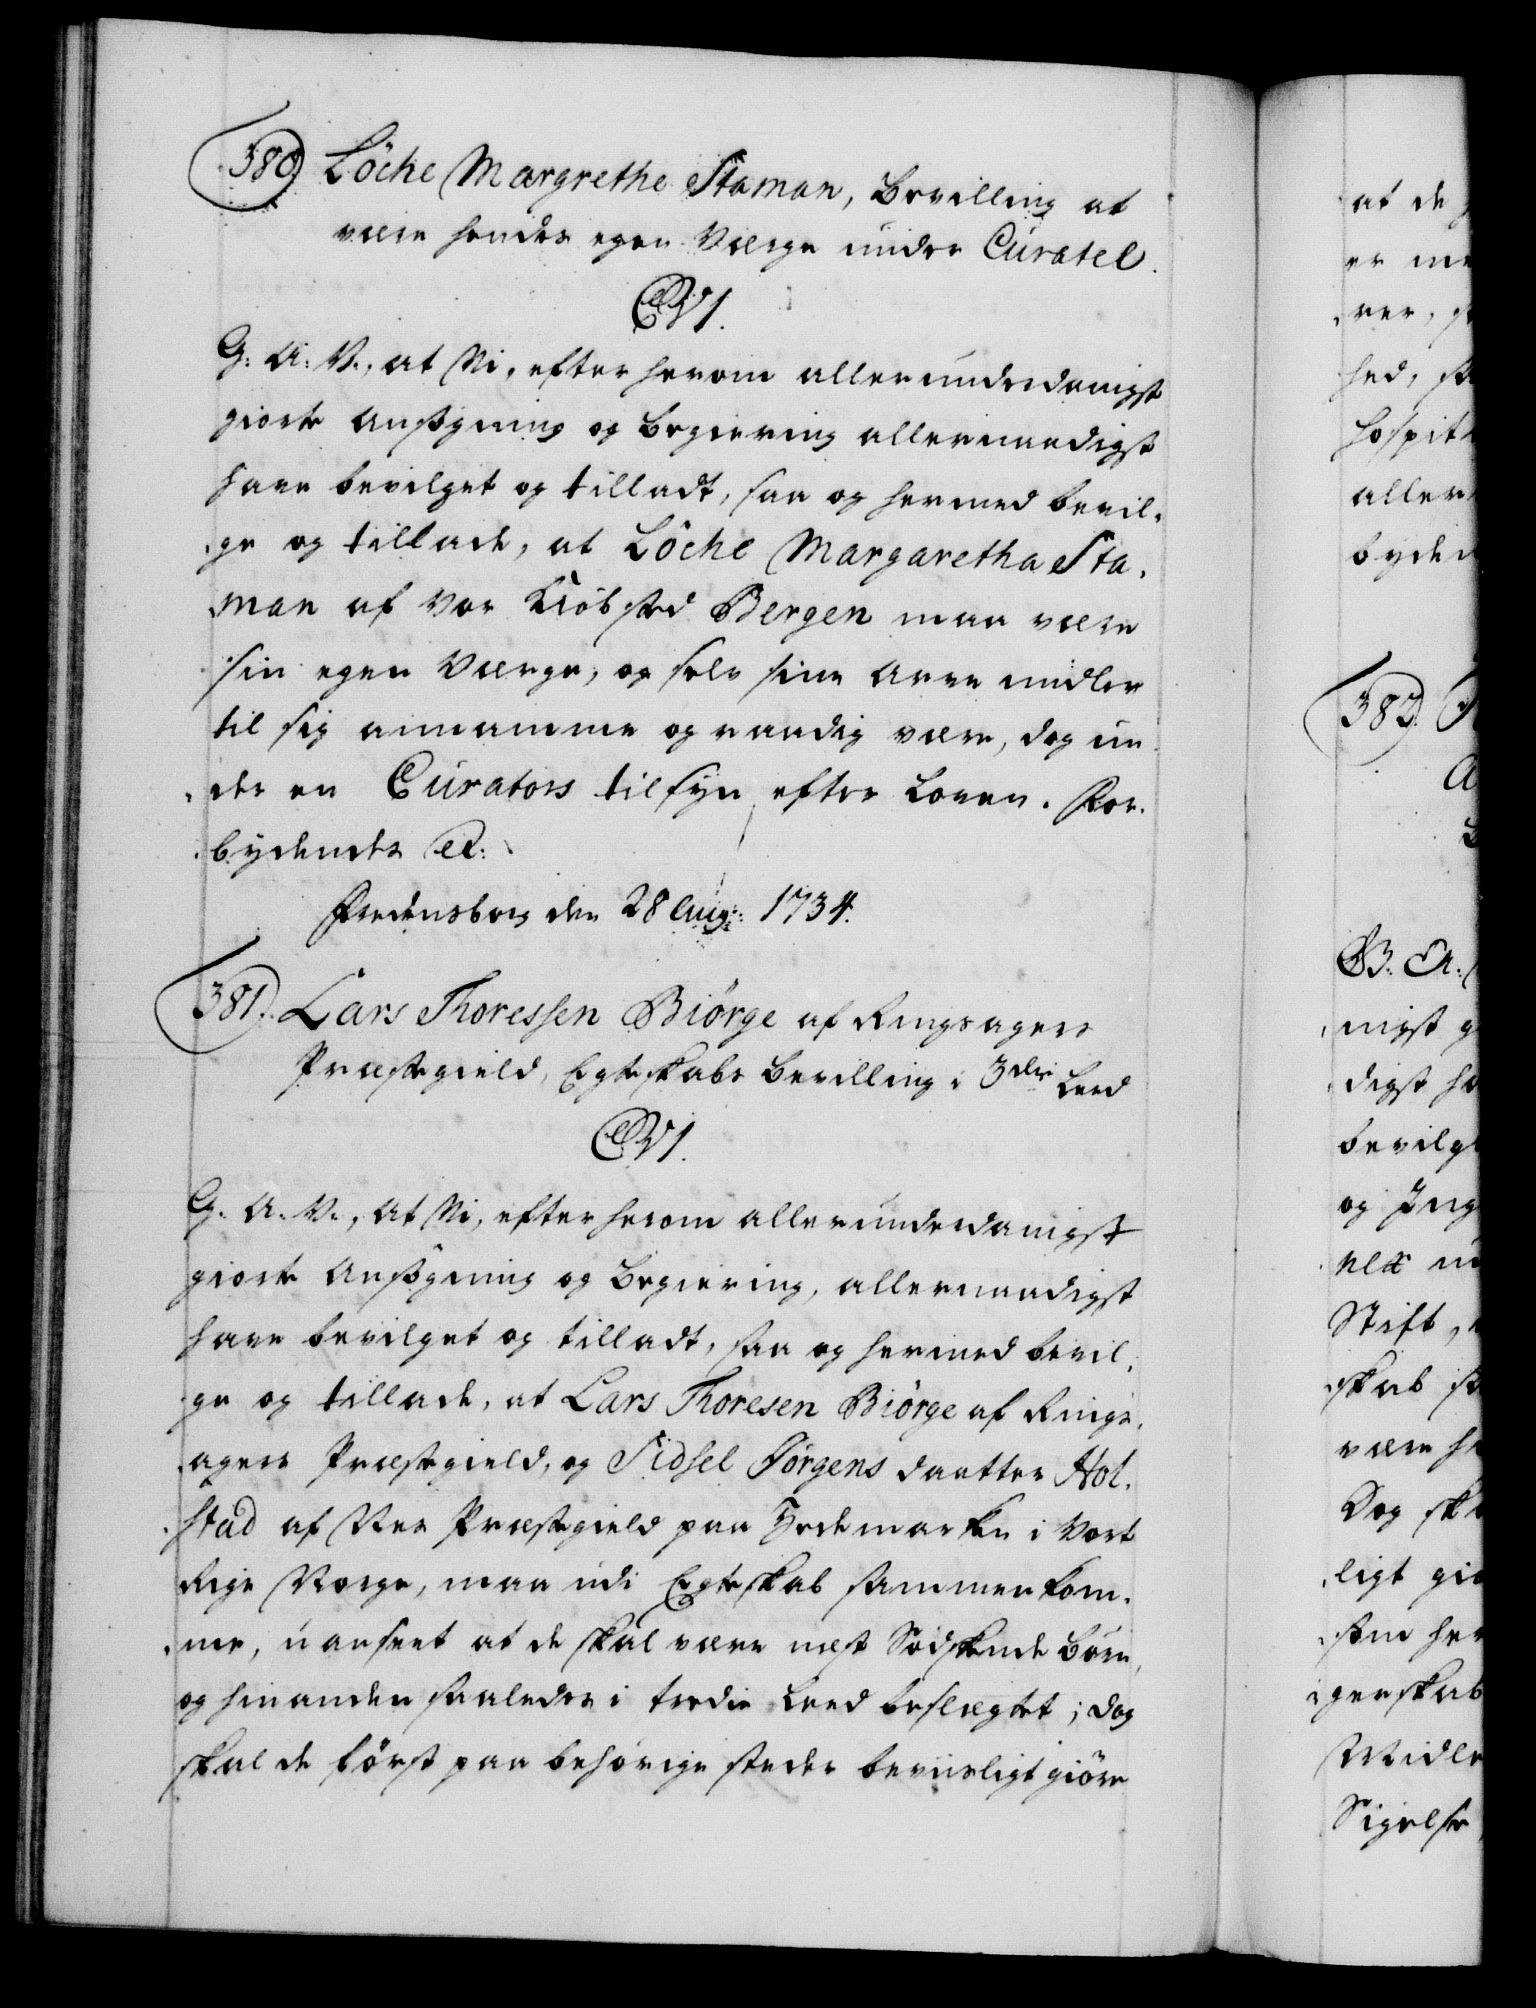 380) Löche Margrethe Staman, Bevilling at
være hendes egen Værge under Curatel.
C VI.
G: A: V., at Vi, efter herom allerunderdanigst
giorte Ansøgning og Begiering allernaadigst
have bevilget og tilladt, saa og hermed bevil-
ge og tillade, at Löche Margaretha Sta-
man af Vor Kiöbsted Bergen maa være
sin egen Værge, og selv sine Arve midler
til sig annamme og raadig være, dog un-
der en Curators tilsyn efter Loven. For-
bydendes etc:
Fredensborg den 28 Aug: 1734.
381). Lars Thoressen Biörge af Ringsagers
Præstegield, Egteskabs Bevilling i 3die Leed
C VI.
G. A. V., at Vi, efter herom allerunderdanigst
giorte Ansøgning og Begiering, allernaadigst
have bevilget og tilladt, saa og hermed bevil-
ge og tillade, at Lars Thoresen Biörge af Rings-
agers Præstegield, og Sidsel Jörgens daatter Hol-
stad af Næs Præstegield paa Hedemarken i Vort
Rige Norge, maa udi Egteskab sammenkom-
me, uanseet at de skal være næst Sødskende Børn,
og hinanden saaledes i tredie Leed beslægtet; dog
skal de först paa behörige steder beviisligt giöre
at de
er me
ver,
hed, 
hospit
aller
byden
382)
G. A.
nigst g
digst ha
bevilg
og Ing
Stift,
skab
være h
Dog sk
ligt gi
som her
gerskab
Midle
Sigelse